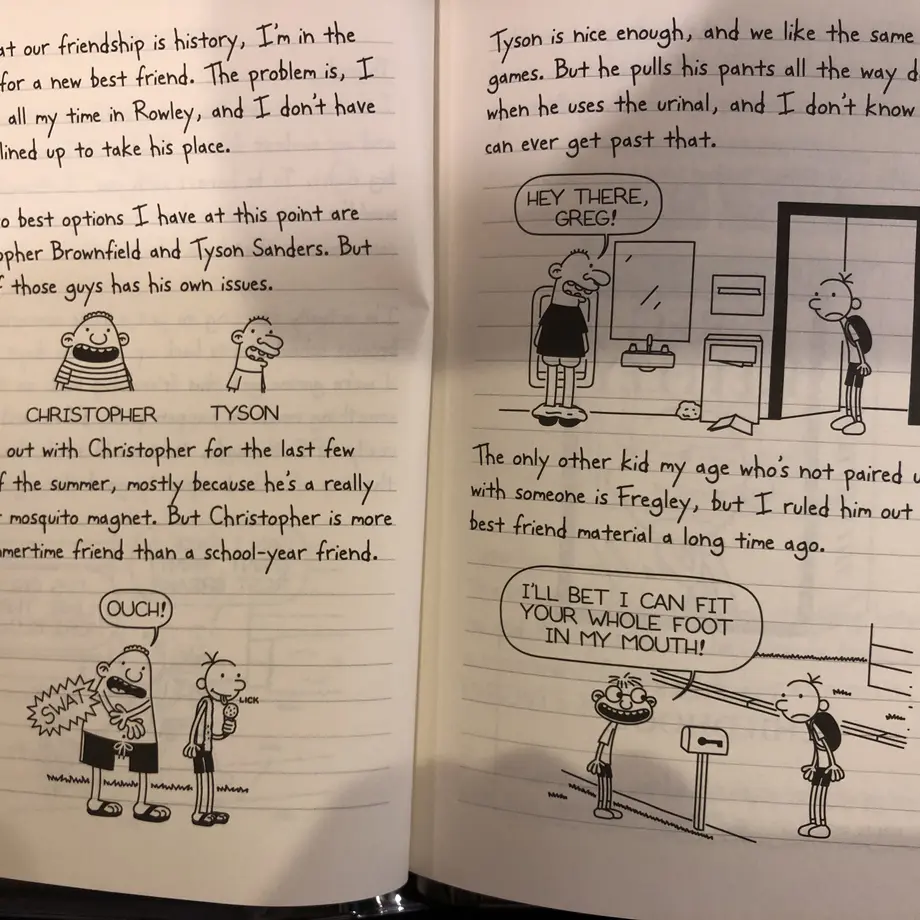 at our friendship is history, I'm in the
for a new best friend. The problem is, I
all my time in Rowley, and I don't have
lined up to take his place.
o best options I have at this point are
opher Brownfield and Tyson Sanders. But
f those guys has his own issues.
CHRISTOPHER
TYSON
out with Christopher for the last few
f the summer, mostly because he's a really
mosquito magnet. But Christopher is more
mertime friend than a school-year friend.
OUCH!
SWAT
LICK
Tyson is nice enough, and we like the same
games. But he pulls his pants all the way d
when he uses the urinal, and I don't know
can ever get past that.
HEY THERE,
GREG!
The only other kid my age who's not paired u
with someone is Fregley, but I ruled him out
best friend material a long time ago.
I'LL BET I CAN FIT
YOUR WHOLE FOOT
IN MY MOUTH!